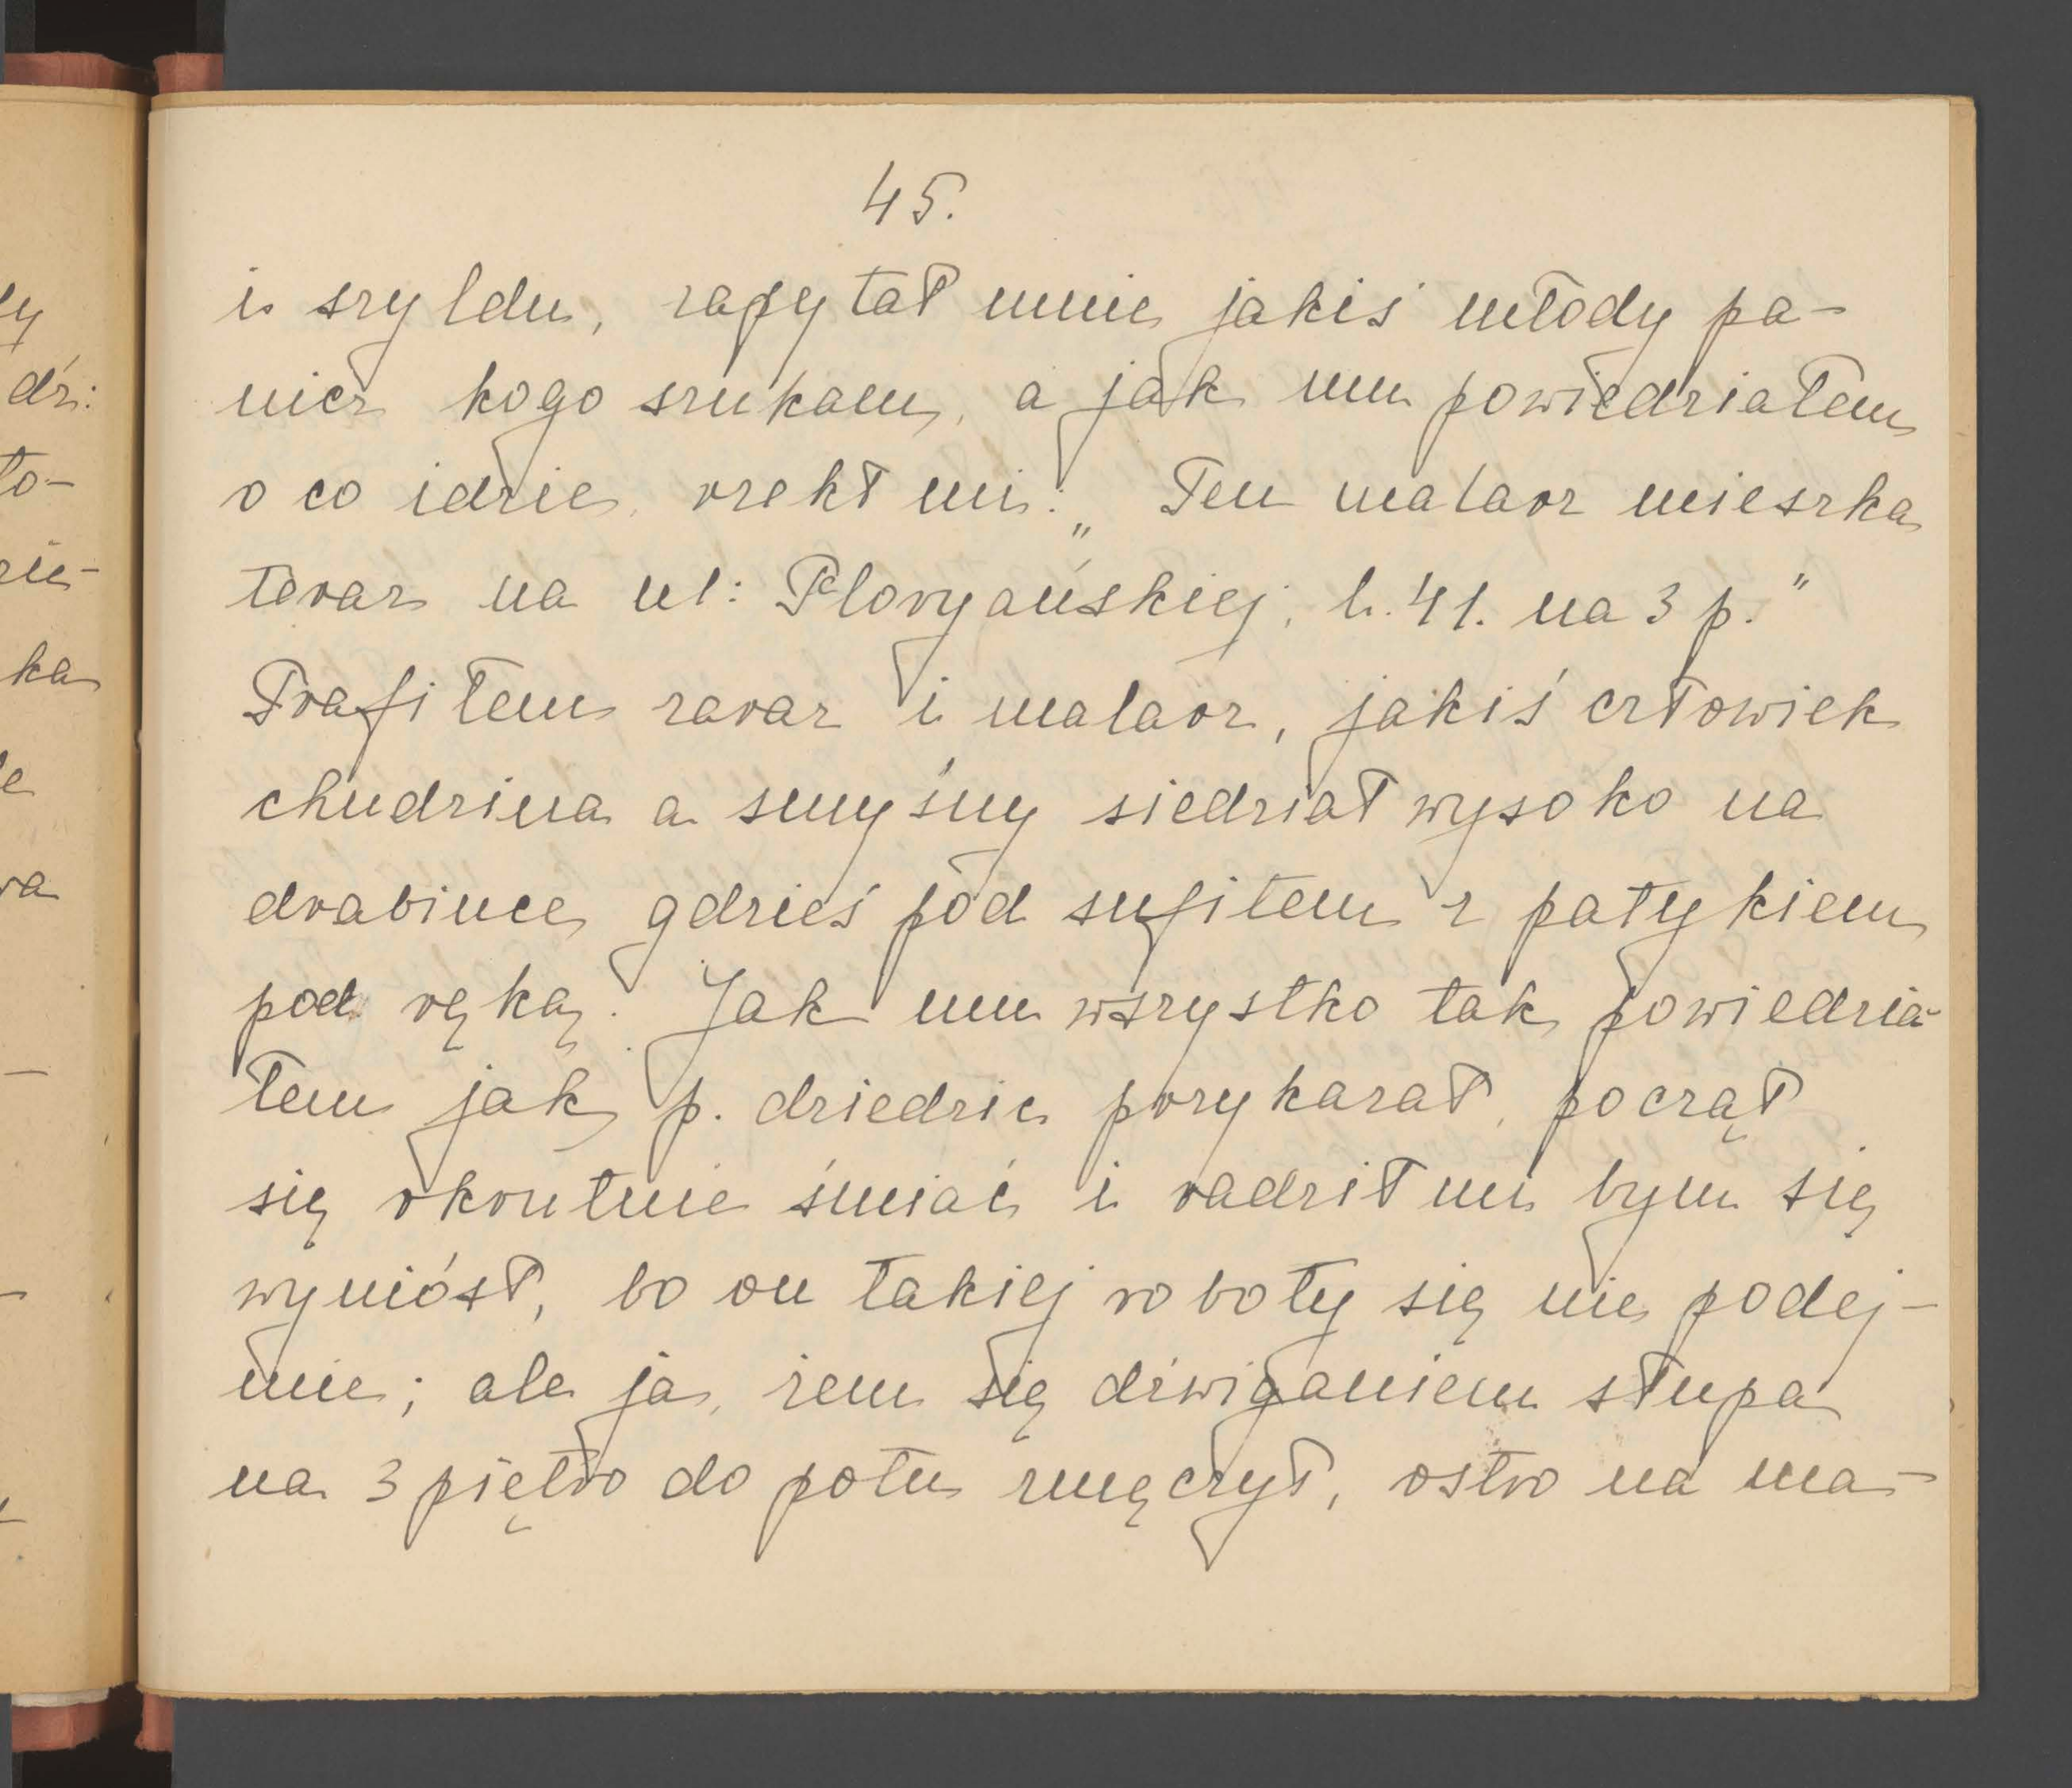 45.
i szyldu, zapytał mnie jakiś młody pa-
nicz kogo szukam, a jak mu powiedziałem
o co idzie, rzekł mi: „Ten malarz mieszka
teraz na ul: Floryańskiej, l. 41. na 3 p."
Trafiłem zaraz i malarz, jakiś człowiek
chudzina a smyśny siedział wysoko na
drabince gdzieś pod sufitem z patykiem
pod ręką. Jak mu wszystko tak powiedzia-
łem jak p. dziedzic przykazał, począł
się okrutnie śmiać i radził mi bym się
wyniósł, bo on takiej roboty się nie podej-
mie; ale ja, żem się dźwiganiem słupa
na 3 piętro do potu zmęczył, ostro na ma-
dzi:
to-
ka